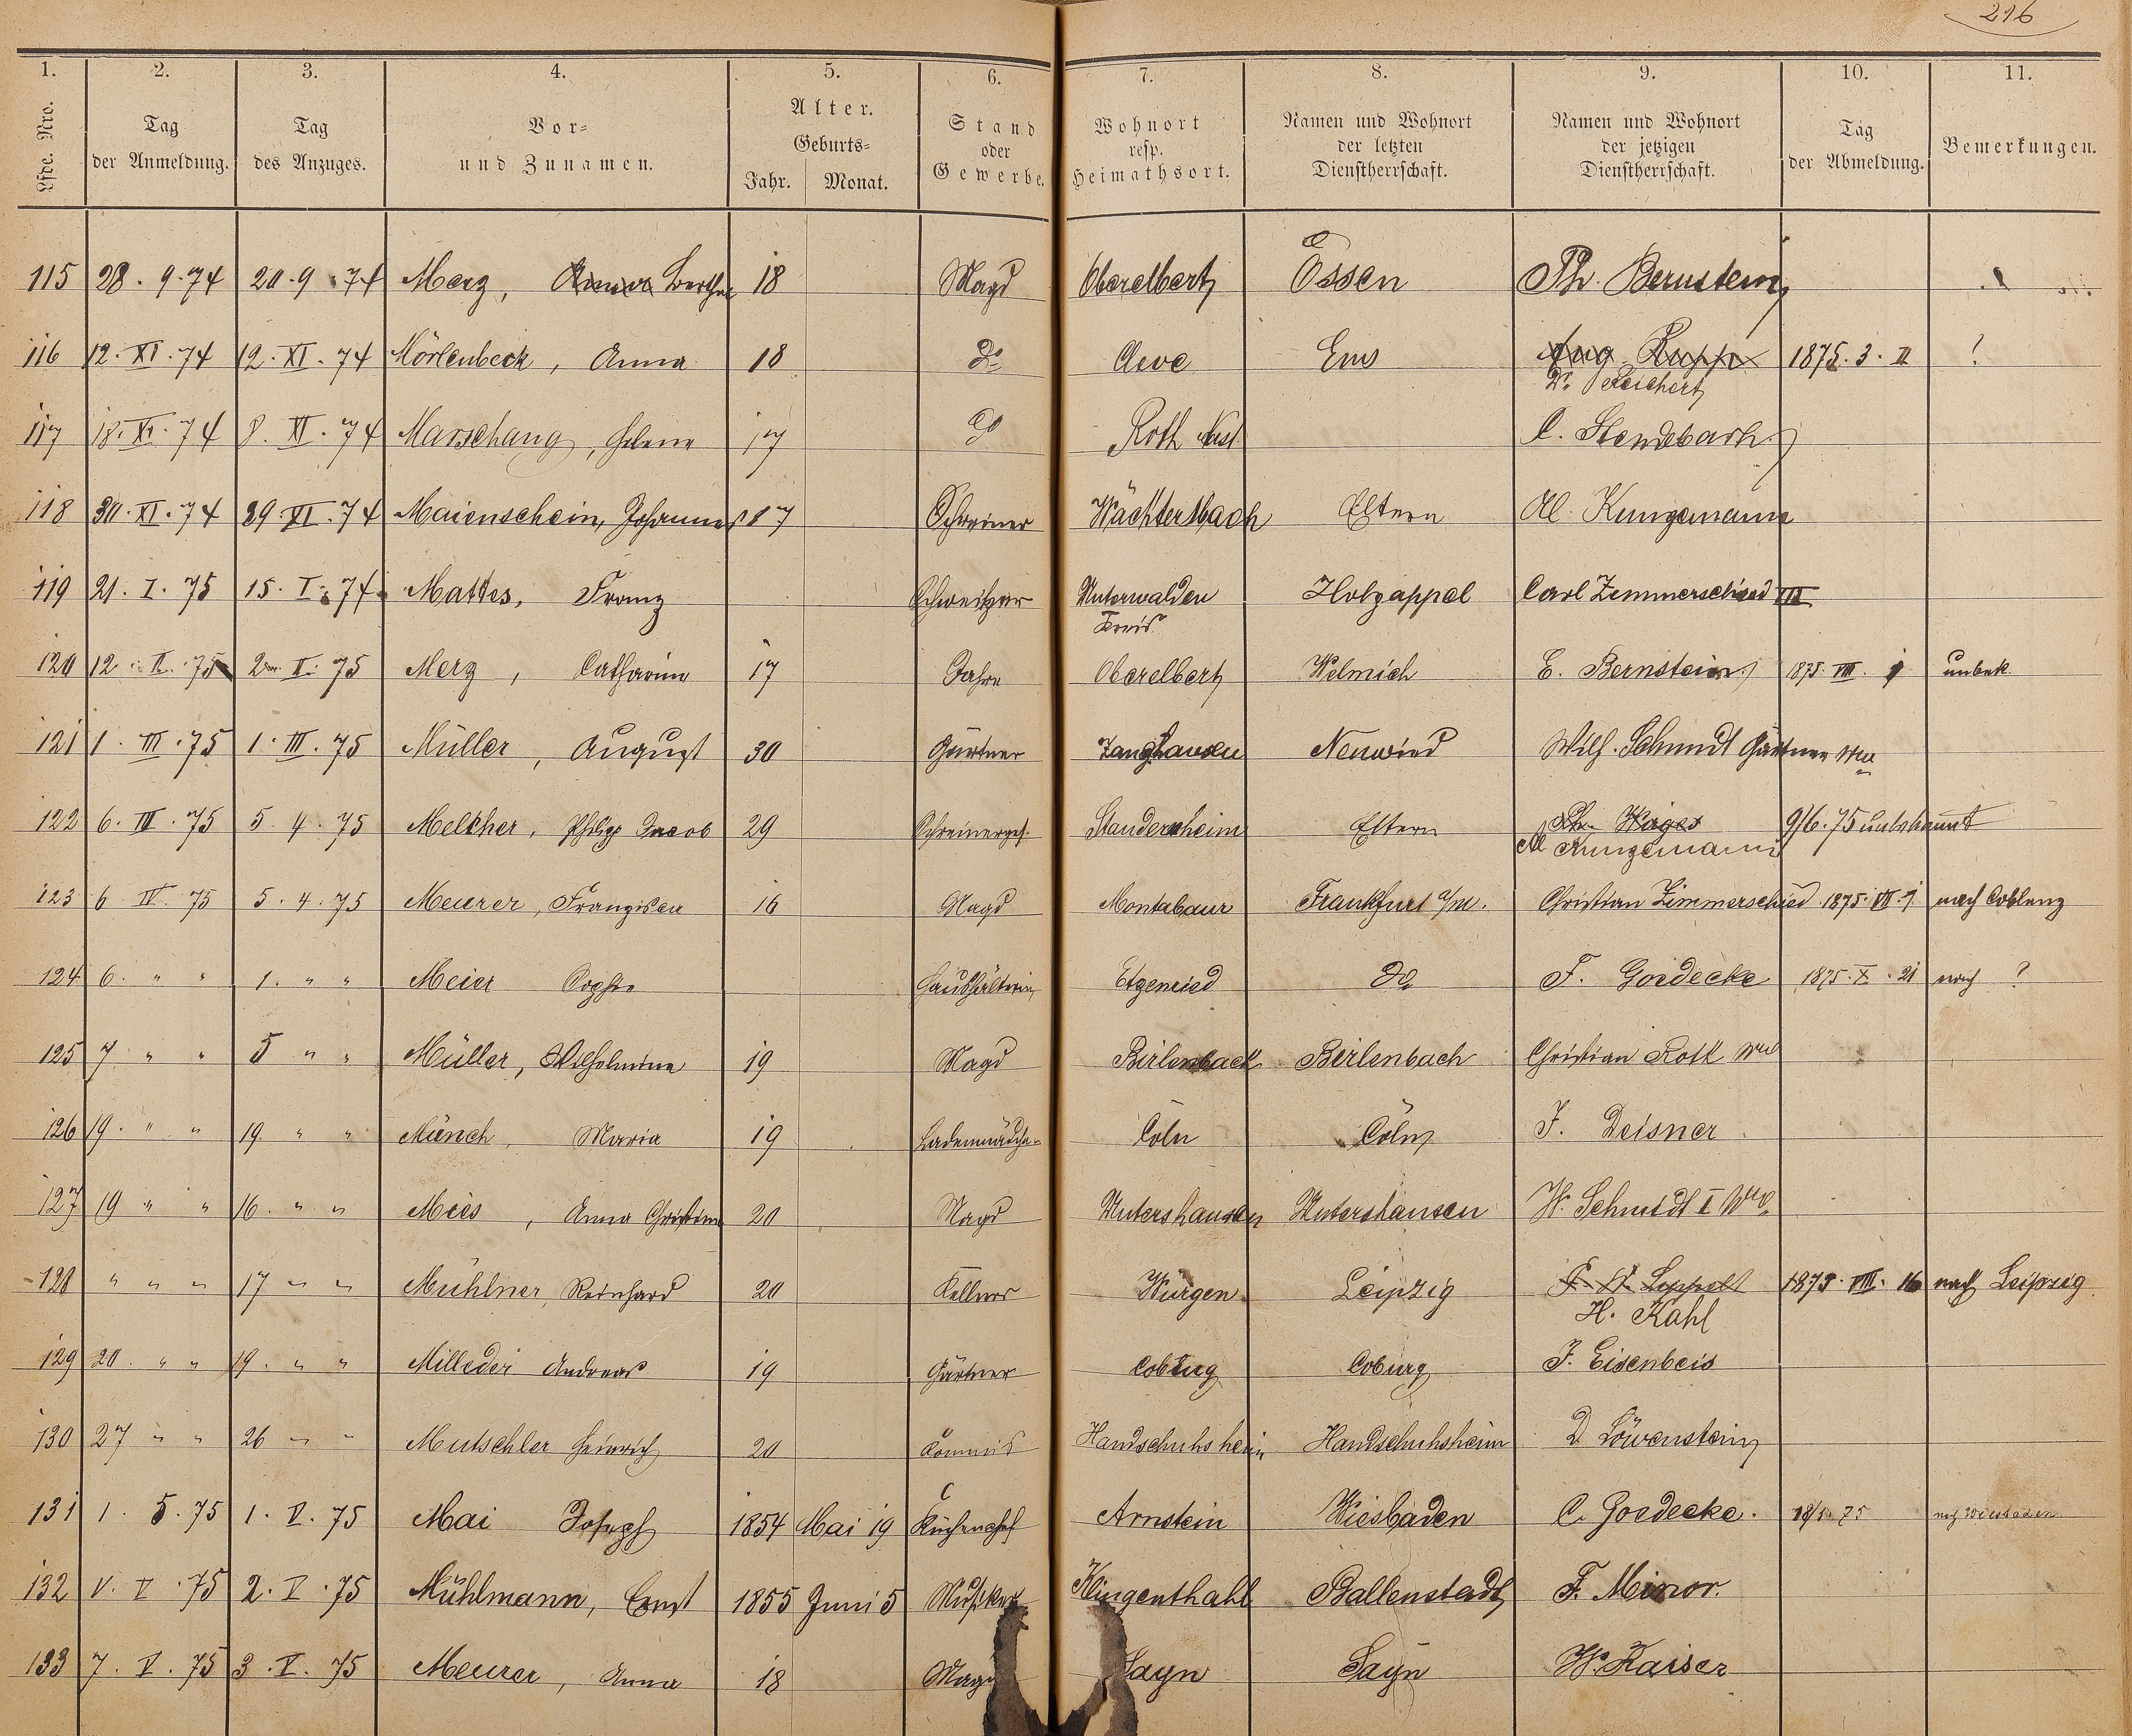 216
1. 2. 3. 4. 5. 6. 7. 8. 9. 10. 11.
Lfde. Nro. Tag der Anmeldung. Tag des Anzuges. Vor- und Zunamen. Alter. Geburts- Jahr. Monat. Stand oder Gewerbe. Wohnort resp. Heimathsort. Namen und Wohnort der letzten Dienstherrschaft. Namen und Wohnort der jetzigen Dienstherrschaft. Tag der Abmeldung. Bemerkungen.
115 28. 9. 74 20. 9. 74 Merz, Anna Bertha 18 Magd Oberelbert Essen Ph. Bernstein
116 12. XI. 74 12. XI. 74 Mörlenbeck, Anna 18 do Cleve Ems Aug. Rupp 1875. 3. II ?
Dr. Reichert
117 18. XI. 74 8. XI. 74 Marschang, Helena 17 do Roth C. Stendebach
118 30. XI. 74 29. XI. 74 Maienschein, Johannes 17 Schreiner Wächtersbach Eltern Al. Kungemann
119 21. I. 75 15. I. 74 Mattes, Franz Schweitzer Unterwalden Holzappel Carl Zimmerschied III
Kreis
120 12. II. 75 2. II. 75 Merz, Catharina 17 Oberelbert Welmich E. Bernstein 1875. VIII. 1 unbek.
121 1. III. 75 1. III. 75 Müller, August 30 Gärtner Neuwied Wilh. Schmidt Gärtner Ww
122 6. III. 75 5. 4. 75 Melcher, Philipp Jacob 29 Schreinerges. Standernheim Eltern
9/6. 75 unbekannt
Al Kungemann
123 6 IV. 75 5. 4. 75 Meurer, Franziska 16 Magd Montabaur Frankfurt a/M. Christian Zimmerschied 1875. VII. 1 nach Coblenz
124 6. " " 1. " " Meier Sophie Haushälterin Etzenried do F. Goedecke 1875. X. 21 nach ?
125 7 " " 5 " " Müller, Wilhelmine 19 Magd Birlenbach Birlenbach Christian Roth Ww
126 19. " " 19 " " Münch, Maria 19 Cöln Cöln J. Deisner
127 19 " " 16. " " Meis, Anna Christine 20 Magd Untershausen Untershausen W. Schmidt I Wwe.
128 " " " 17 " " Mühlner, Reinhard 20 Kellner Wurgen Leipzig 1875. VIII. 16 nach Leipzig
H. Kahl
129 20. " " 19. " " Milleder Andreas 19 Gärtner Coburg Coburg J. Eisenbeis
130 27 " " 26 " " Mutschler Heinrich 20 Commis Handschuhsheim Handschuhsheim D. Löwenstein
131 1. 5. 75 1. V. 75 Mai Joseph 1854 Mai 19 Küchenchef Arnstein Wiesbaden C. Goedecke. 18/5. 75 nach Wiesbaden
132 V. V. 75 2. V. 75 Mühlmann, Ernst 1855 Juni 5 Musiker Klingenthahl Ballenstedt F. Minor.
133 7. V. 75 3. V. 75 Meurer, Anna 18 Magd Sayn Sayn W. Kaiser